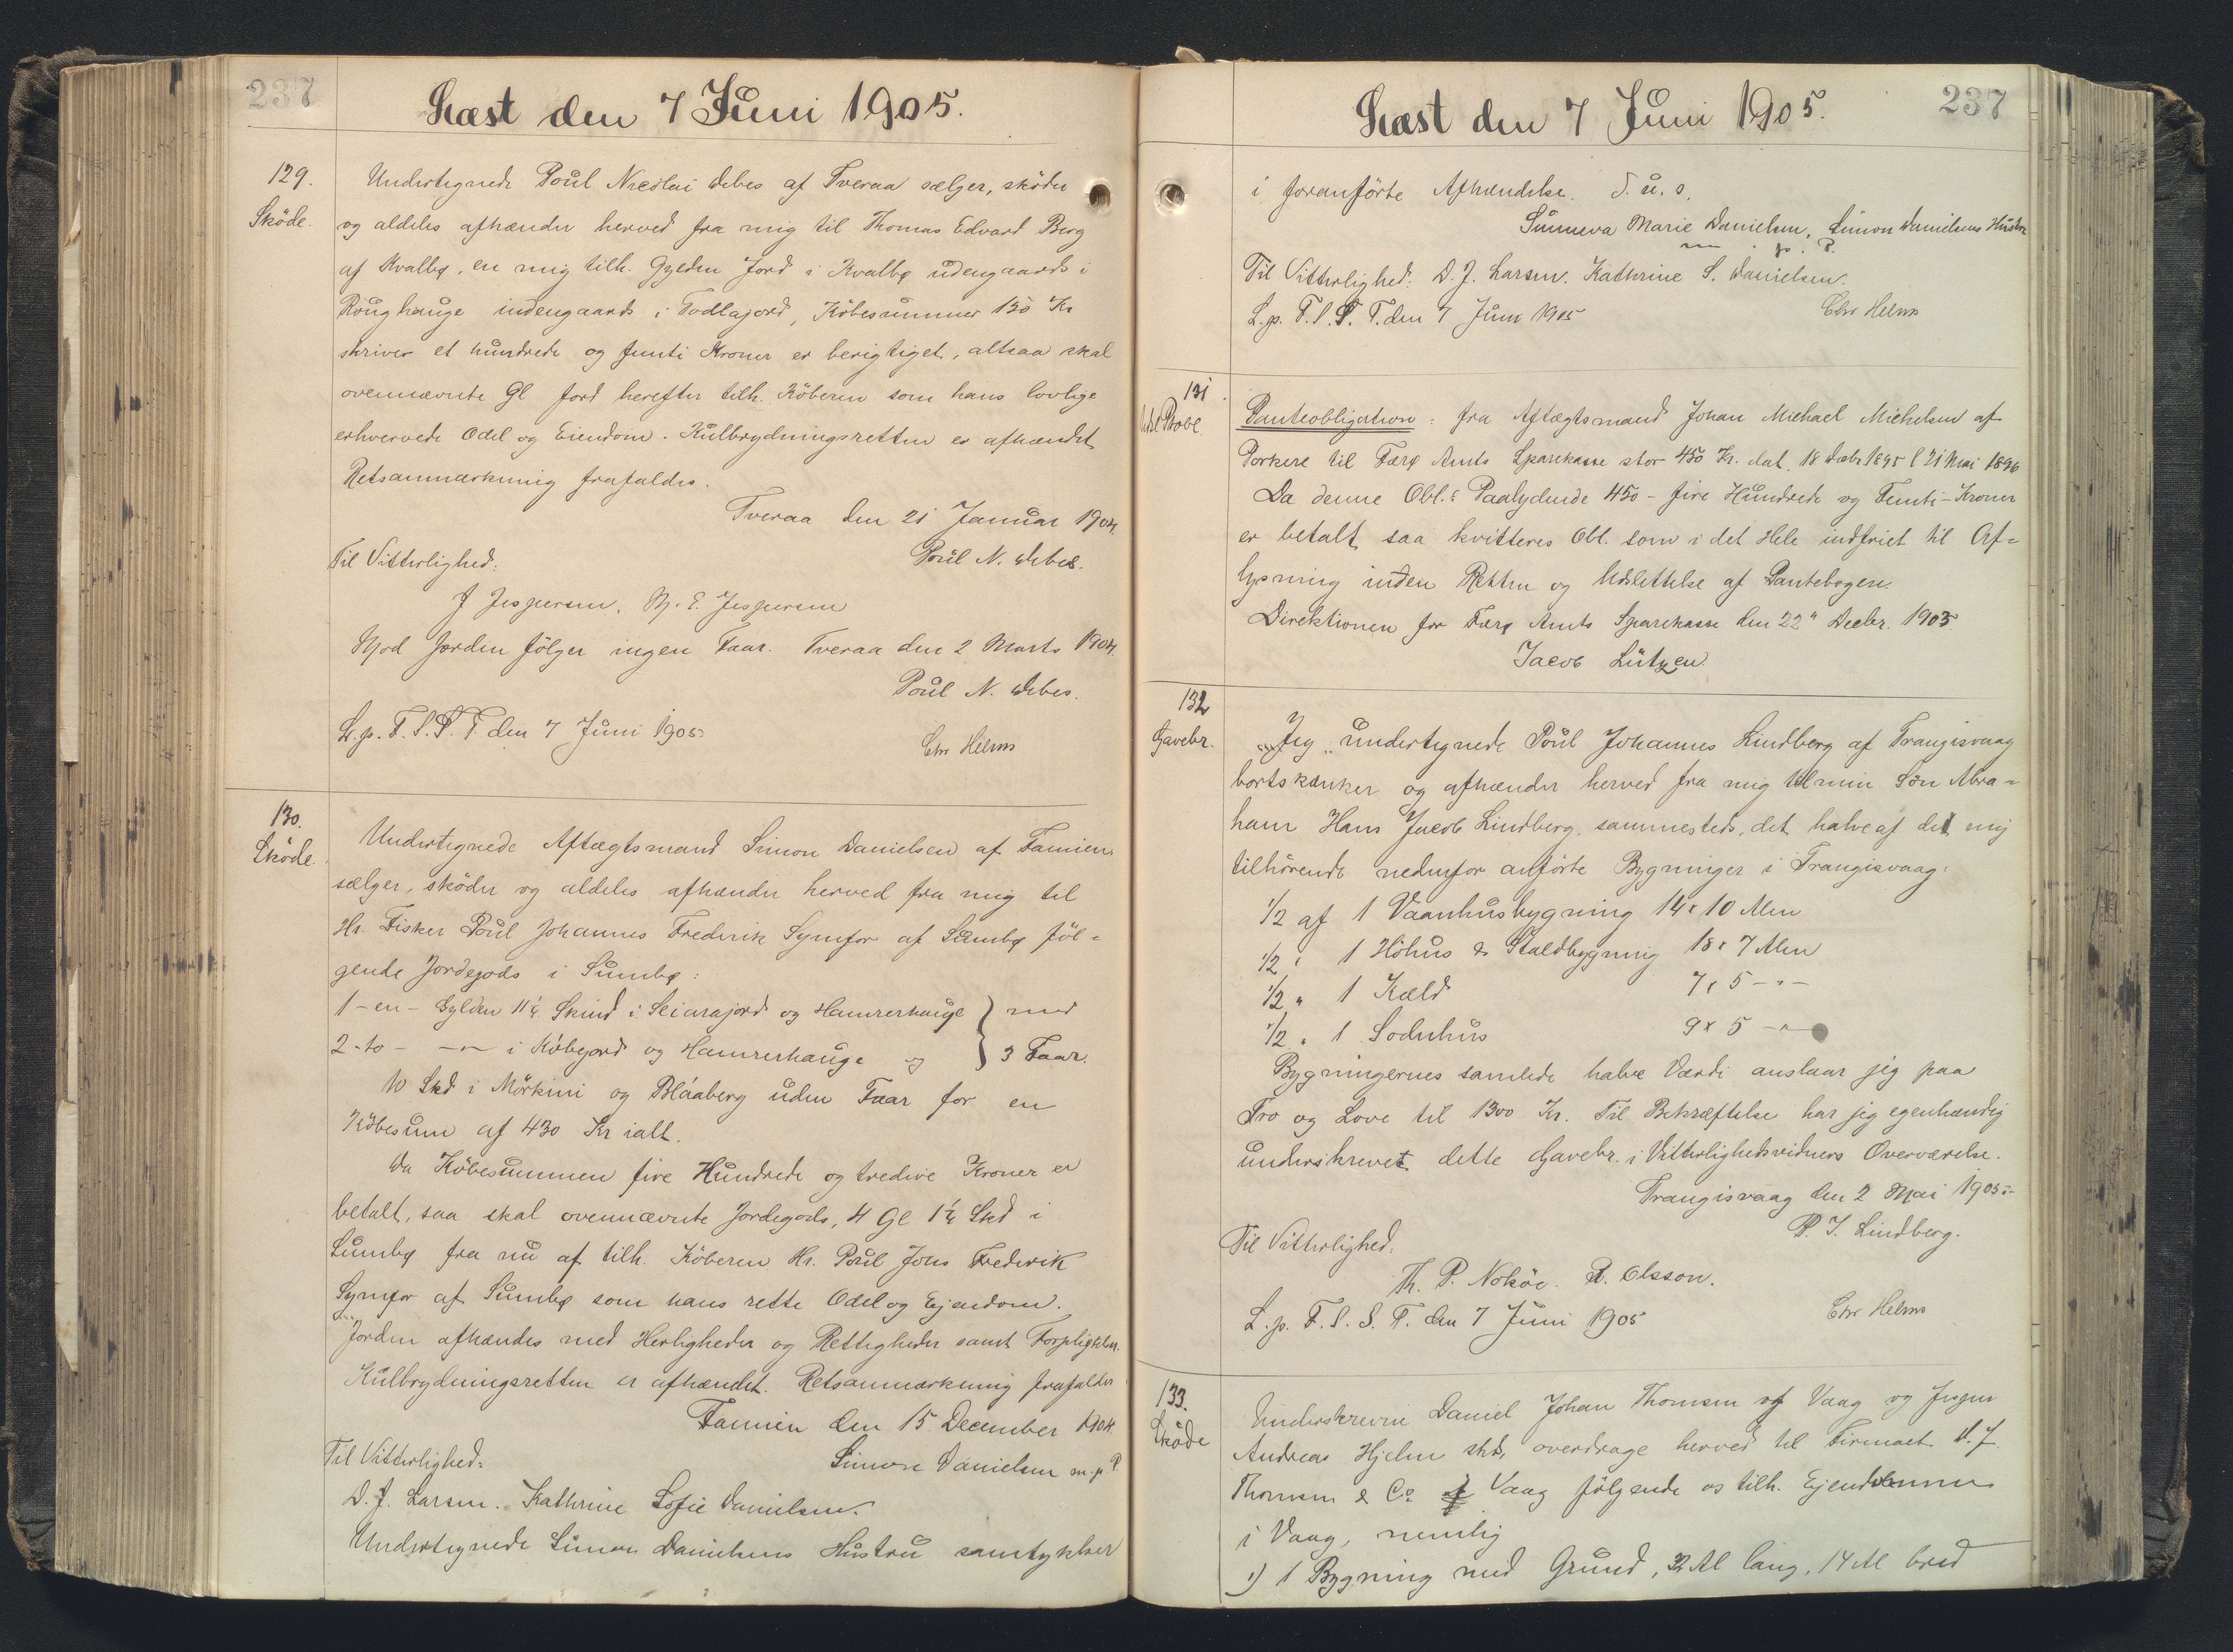 237
Læst den 7 Juni 1905.
129.
Sköde.
Undertegnede Poul Nicolai Debes af Tveraa sælger, sköder
og aldeles afhænder herved fra mig til Thomas Edvard Berg
af Kvalbø, en mig tilh. Gylden Jord i Kvalbø udengaards i
Rounghauge indengaards i Todlajord, Köbesummer 150 Kr
skriver et hundrede og femti Kroner er berigtiget, altsaa skal
ovennævnte Gl Jord herefter tilh. Köberen som hans lovlige
erhvervede Odel og Eiendom. Kulbrydningsretten er afhændet
Retsanmærkning frafaldes.
Tveraa den 21 Januar 1904.
Til Vitterlighed:
Poul N. Debes.
J Jespersen, M. E. Jespersen
Mod Jorden fölger ingen Faar. Tveraa den 2 Marts 1904.
Poul N. Debes.
L. p. F. S. S. T. den 7 Juni 1905
Chr Helms
130.
Sköde
Undertegnede Aftægtsmand Simon Danielsen af Famien
sælger, sköder og aldeles afhænder herved fra mig til
Hr. Fisker Poul Johannes Frederik Symfor af Sumbø föl=
gende Jordegods i Sumbø:
1 - en - Gylden 11 1/4 Skind i Seiarajord og Hamrerhauge } med
2 - to - -"- i Köbejord og Hamrerhauge og } 3 Faar.
10 Skd i Mörkini og Bláaberg uden Faar for en
Köbesum af 430 Kr ialt.
Da Köbesummen fire Hundrede og tredive Kroner er
betalt, saa skal ovennævnte Jordegods, 4 Gl 1 1/4 Skd i
Sumbø fra nu af tilh. Köberen Hr. Poul Johs Frederik
Symfor af Sumbø som hans rette Odel og Ejendom.
Jorden afhændes med Herligheder og Rettigheder samt Forpligtelser.
Kulbrydningsretten er afhændet. Retsanmærkning frafaldes
Famien den 15 December 1904.
Til Vitterlighed:
Simon Danielsen m. p. P.
D. J. Larsen. Kathrine Sofie Danielsen.
Undertegnede Simon Danielsens Hustru samtykker
237
Læst den 7 Juni 1905.
i foranförte Afhændelse. D. u. s.
Sunneva Marie Danielsen, Simon Danielsens Hustru
m. p. P.
Til Vitterlighed: D. J. Larsen. Kathrine S. Danielsen.
L. p. F. S. S. T. den 7 Juni 1905
Chr Helms
131
Panteobligation: fra Aftægtsmand Johan Michael Michelsen af
Porkere til Færø Amts Sparekasse stor 450 Kr. dat. 18 Decbr 1895 l 21 Mai 1896
Da denne Obl.s Paalydende 450 - fire Hundrede og Femti - Kroner
er betalt saa kvitteres Obl. som i det Hele indfriet til Af=
lysning inden Retten og Udslettelse af Pantebogen.
Direktionen for Færø Amts Sparekasse den 22" Decbr. 1903
Jacob Lützen
132
Gavebr.
Jeg undertegnede Poul Johannes Lindberg af Trangisvaag
bortskænker og afhænder herved fra mig til min Sön Abra=
ham Hans Jacob Lindberg sammesteds, det halve af det mig
tilhörende nedenfor anförte Bygninger i Trangisvaag:
1/2 af 1 Vaanhusbygning 14 x 10 Alen
1/2 " 1 Höhus & Staldbygning 18 x 7 Alen
1/2 " 1 Kæld 7 x 5 -"-
1/2 " 1 Sodnhus 9 x 5 -"-
Bygningernes samlede halve Værdi anslaar jeg paa
Tro og Love til 1300 Kr. Til Bekræftelse har jeg egenhændig
underskrevet dette Gavebr. i Vitterlighedsvidners Overværelse.
Trangisvaag den 2 Mai 1905
P. J. Lindberg.
Til Vitterlighed:
Th. P. Nolsöe. R. Olsson.
L. p. F. S. S. T. den 7 Juni 1905
Chr Helms
133.
Sköde
Underskrevne Daniel Johan Thomsen af Vaag og Jesper
Andreas Hjelm sstds overdrage herved til Firmaet D. J.
Thomsen & Co af Vaag fölgende os tilh. Ejendomme
i Vaag, nemlig
1) 1 Bygning med Grund, 32 Al lang, 14 Al bred